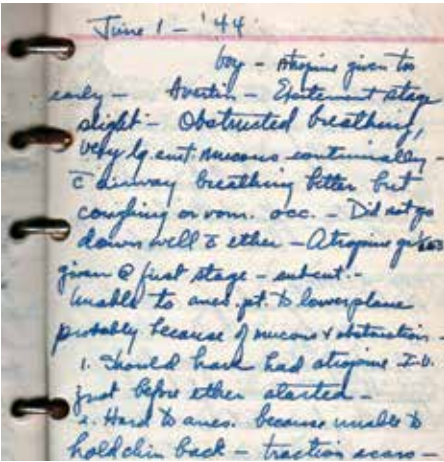 June 1 - '44
boy - Atropine given too
early - Avertin - Excitement stage
slight - Obstructed breathing,
very lg. amt. mucous continually -
c̄ airway breathing better but
coughing or vom. occ. - Did not go
down well c̄ ether - Atropine gr
given @ first stage - subcut. -
Unable to anes. pt. to lower plane
probably because of mucous & obstruction -
1. Should have had atropine I.V.
just before ether started -
2. Hard to anes. because unable to
hold chin back - traction scars -